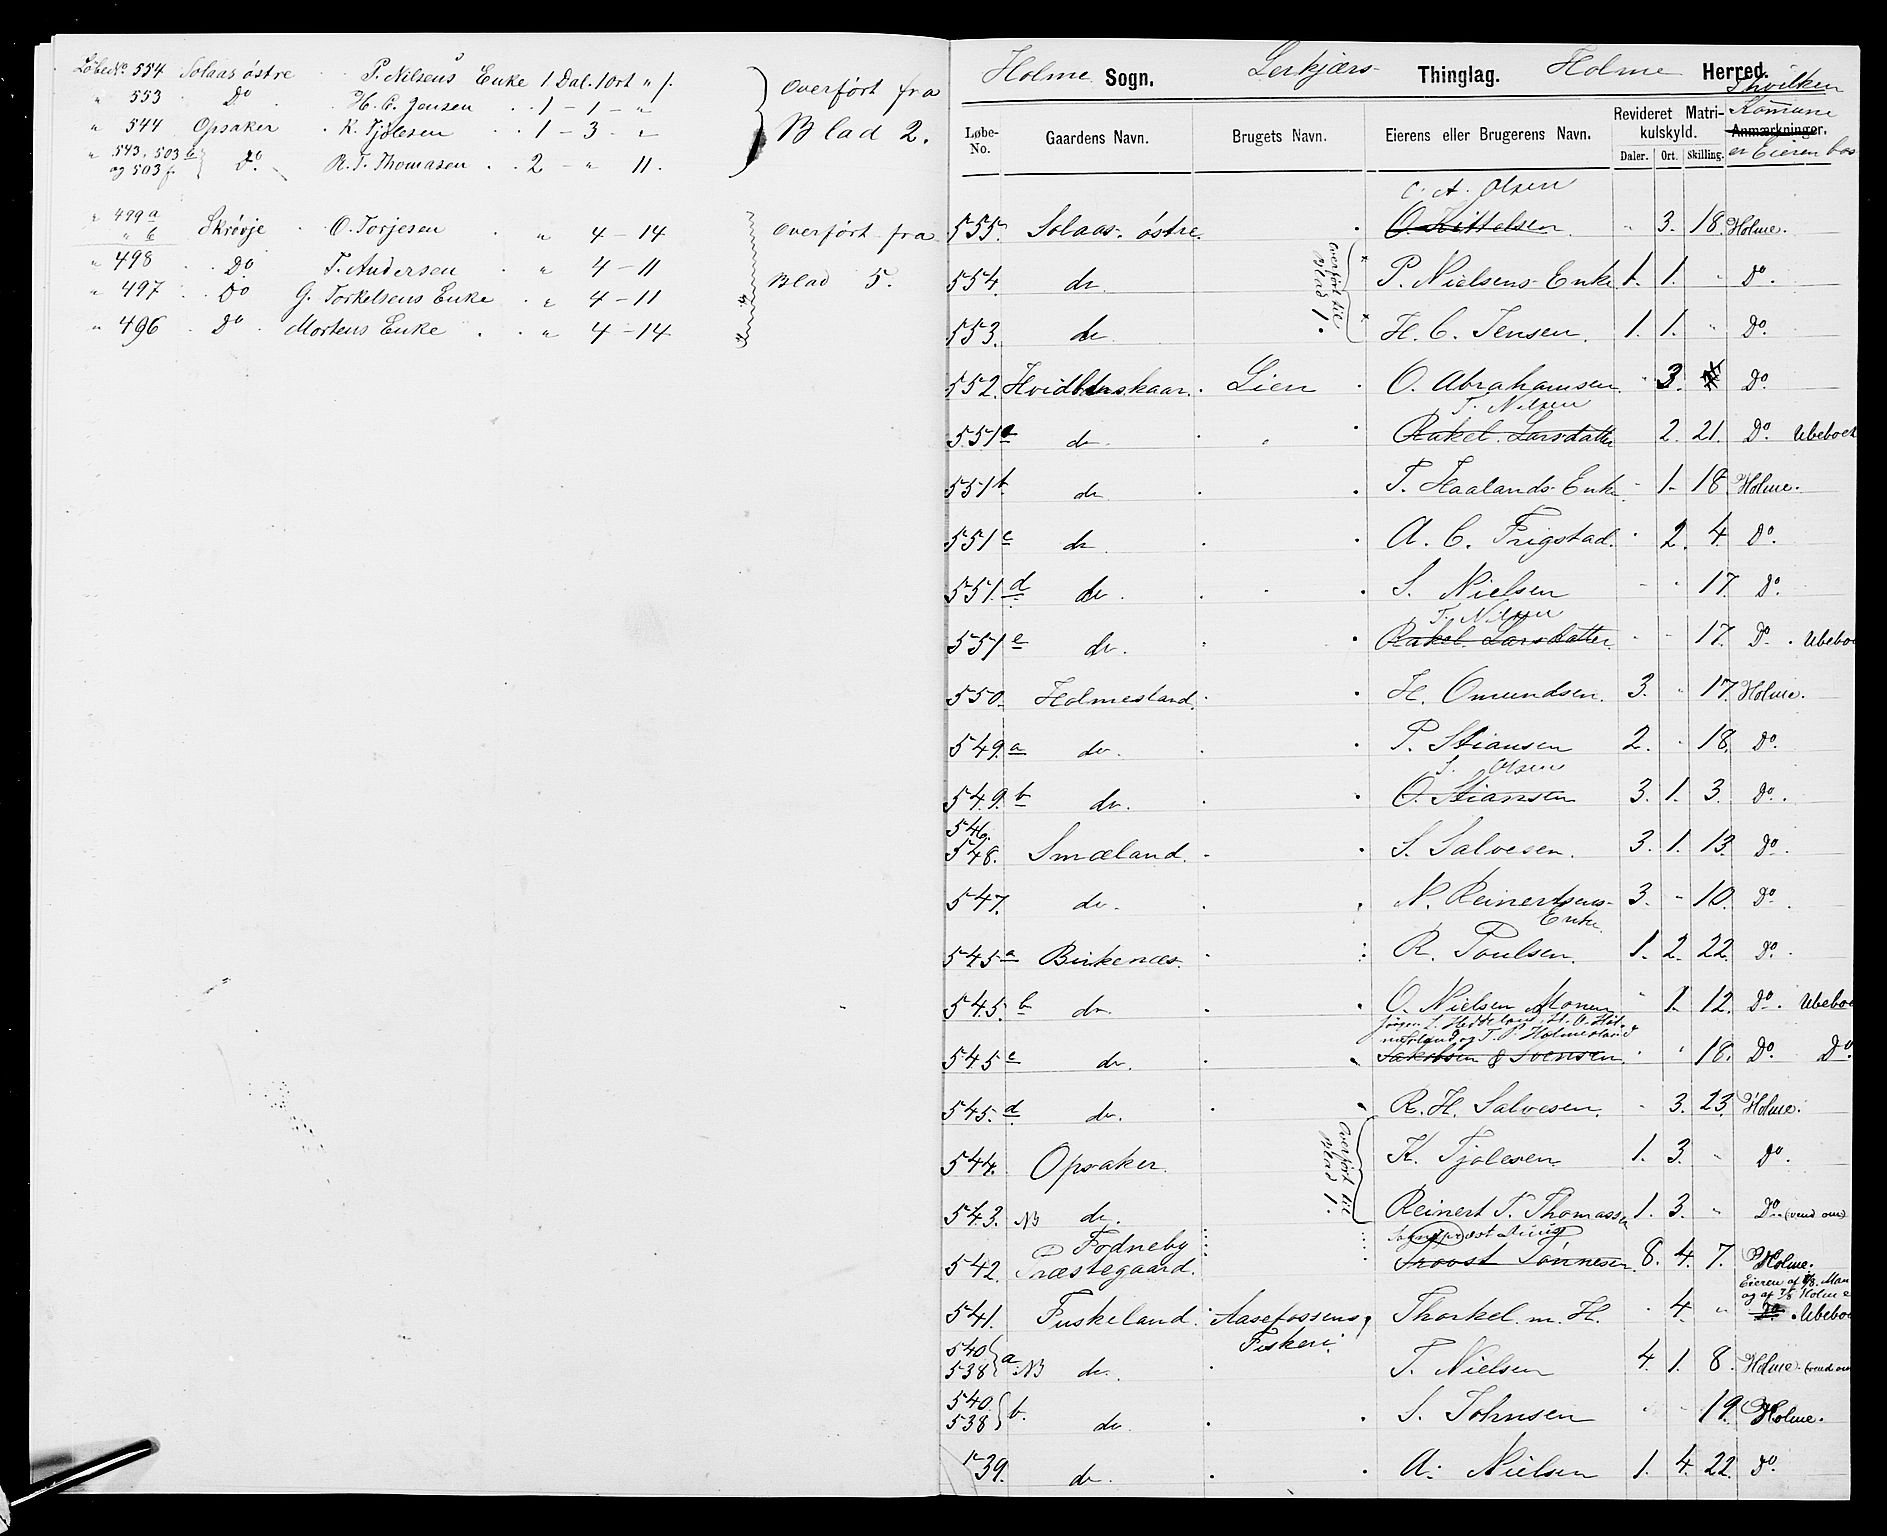 LöbeNo. 554 Solaas östre P. Nilsens Enke 1 Dal. 1 Ort " s.
" 553 Do H. C. Jensen 1 - 1 - "
" 544 Opsaker K. Tjölesen 1 - 3 - "
" 543, 503 b og 503 f. Do. R. T. Thomasen 2 - " 11.
overfört fra
Blad 2.
" 499 a
" " b Skröyje O. Torjesen " 4 - 14
" 498 Do T. Andersen " 4 - 11
" 497 Do G. Torkelsens Enke " 4 - 11
" 496 Do Mortens Enke " 4 - 14
overfört fra
Blad 5.
Holme Sogn. Lerkjærs- Thinglag. Holme Herred.
Løbe-No. Gaardens Navn. Brugets Navn. Eierens eller Brugerens Navn. Revideret Matrikulskyld. Daler. Ort. Skilling. Anmærkninger.
I hvilken Komune er Eieren bos
C. A. Olsen
555. Solaas. östre. O. Kittelsen " 3. 18. Holme.
554. do. P. Nielsens Enke 1. 1. " Do.
overfört til Blad 1.
553. do H. C. Jensen. 1. 1. " Do.
552. Hvidbergskaar. Lien O. Abrahamsen " 3. Do.
T. Nilsen
551 a do. " Rakel Larsdatter 2. 21. Do. Ubeboet
551 b. do T. Haalands Enke - 1. 18 Holme.
551 c do. A. C. Frigstad. " 2. 4. Do.
551. d do. S. Nielsen " " 17. Do.
T. Nilsen
551 e do. Rakel Larsdatter. " " 17. Do. Ubeboe
550. Holmesland. H. Omundsen. 3. " 17. Holme.
549. a do. P. Stiansen 2. " 18. Do.
S. Olsen
549. b do. O. Stiansen 3. 1. 3. Do.
546.
548. Smæland. S. Salvesen. 3. 1. 13. Do.
547. do. N. Reinertsens Enke. 3. " 10. Do.
545 a Birkenæs. R. Poulsen. 1. 2. 22. Do.
545. b do. O. Nielsen Monen " 1. 12. Do. Ubeboe
Jörgen L. Heddeland, H. O. Hol-
mesland og T. P. Holmesland
545 c do. Jakobsen & Svensen " " 18. Do. Do.
545. d do. R. H. Salvesen. " 3. 23. Holme.
544. Opsaker. K. Tjölesen. 1. 3. " Do.
overfört til Blad 1.
543. NB do. Reinert T. Thomassen 1. 3. " Do. (vend om)
Fodneby
542. Præstegaard. Provst Tönnesen. 8. 4. 7. Holme.
Eieren af 1/8. Man
og af 7/8 Holme
541. Fuskeland. Aasefossens Fiskeri. Thorkel m. H. " 4. " Do. Ubeboe
540
538 a NB do. T. Nielsen 4. 1. 8. Holme. (vend om
540.
538 b. do. S. Johnsen " " 19. Holme.
39. do. A. Nielsen 1. 4. 22. Do.